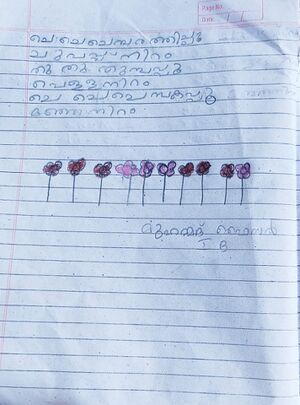 Page No.
Date
ചെ ചെ ചെമ്പരത്തിപ്പൂ
ചുവപ്പ് നിറം
തു തു തുമ്പപ്പൂ
വെള്ള നിറം
ചെ ചെ ചെമ്പകപ്പൂ
മഞ്ഞ നിറം
മുഹമ്മദ്
I B